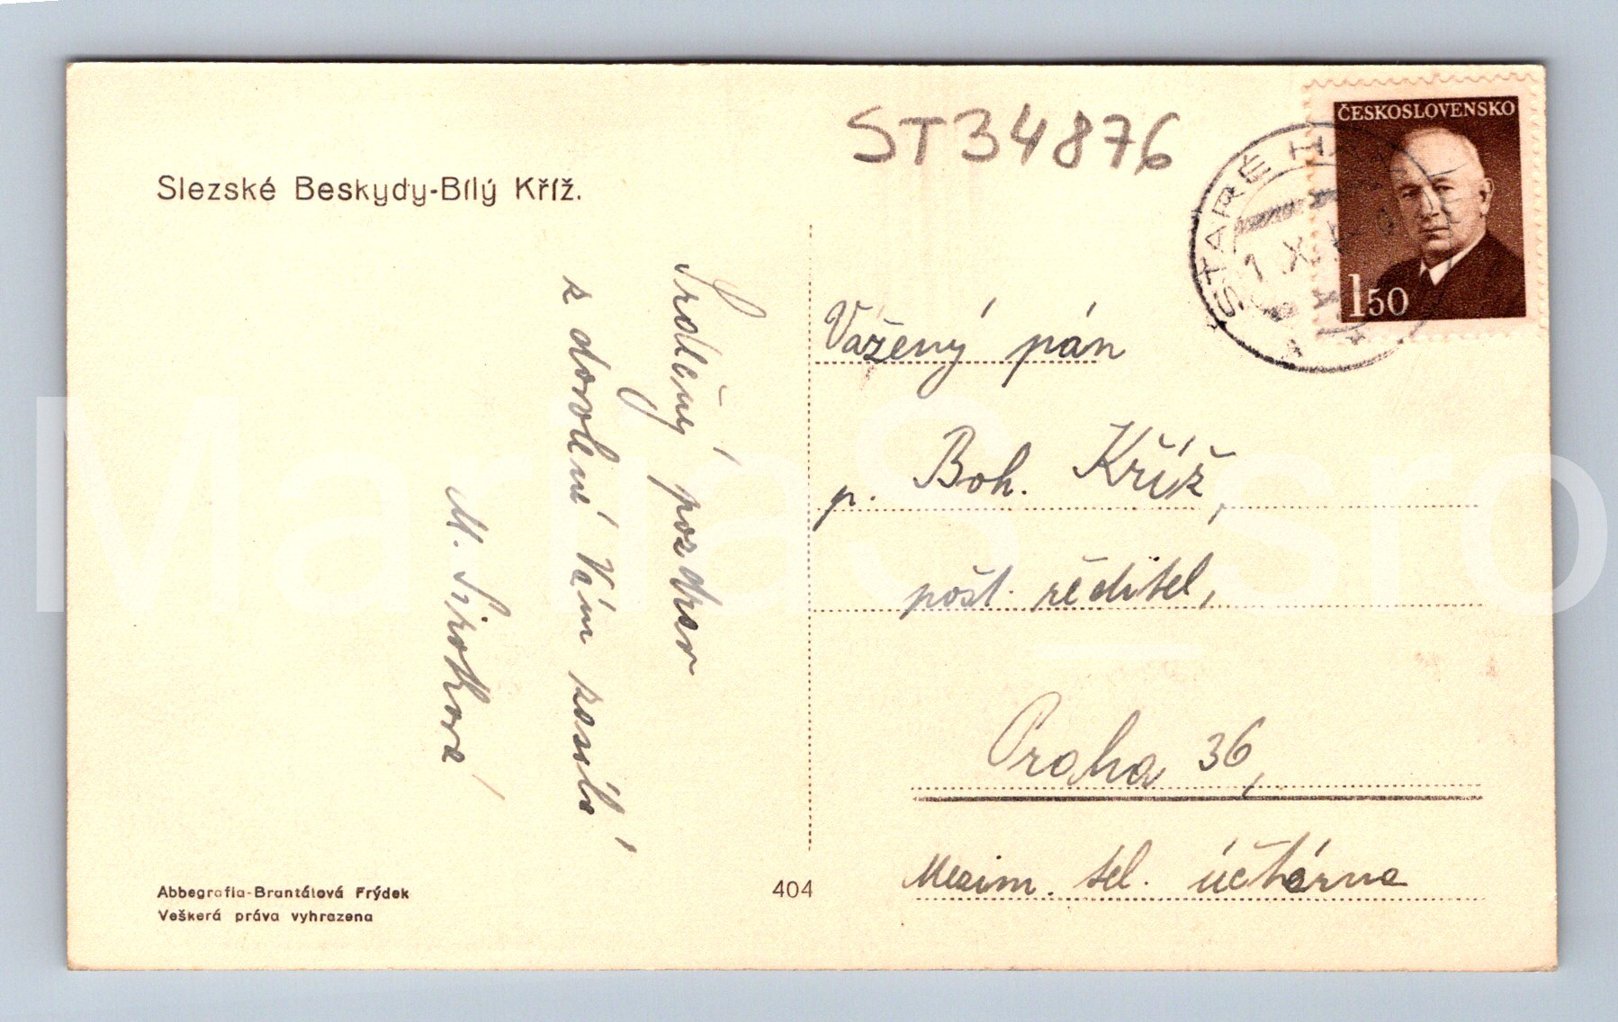 Slezské Beskydy-Bílý Kříž.
Srdečný pozdrav
z dovolené Vám zasílá
M. Široková
Abbegrafia-Brantálová Frýdek
Veškerá práva vyhrazena
404
ST34876
ČESKOSLOVENSKO
150
STARÉ HA
1.X.
Vážený pán
p. Boh. Kříž,
pošt. ředitel,
Praha 36,
Mezim. tel. účtárna